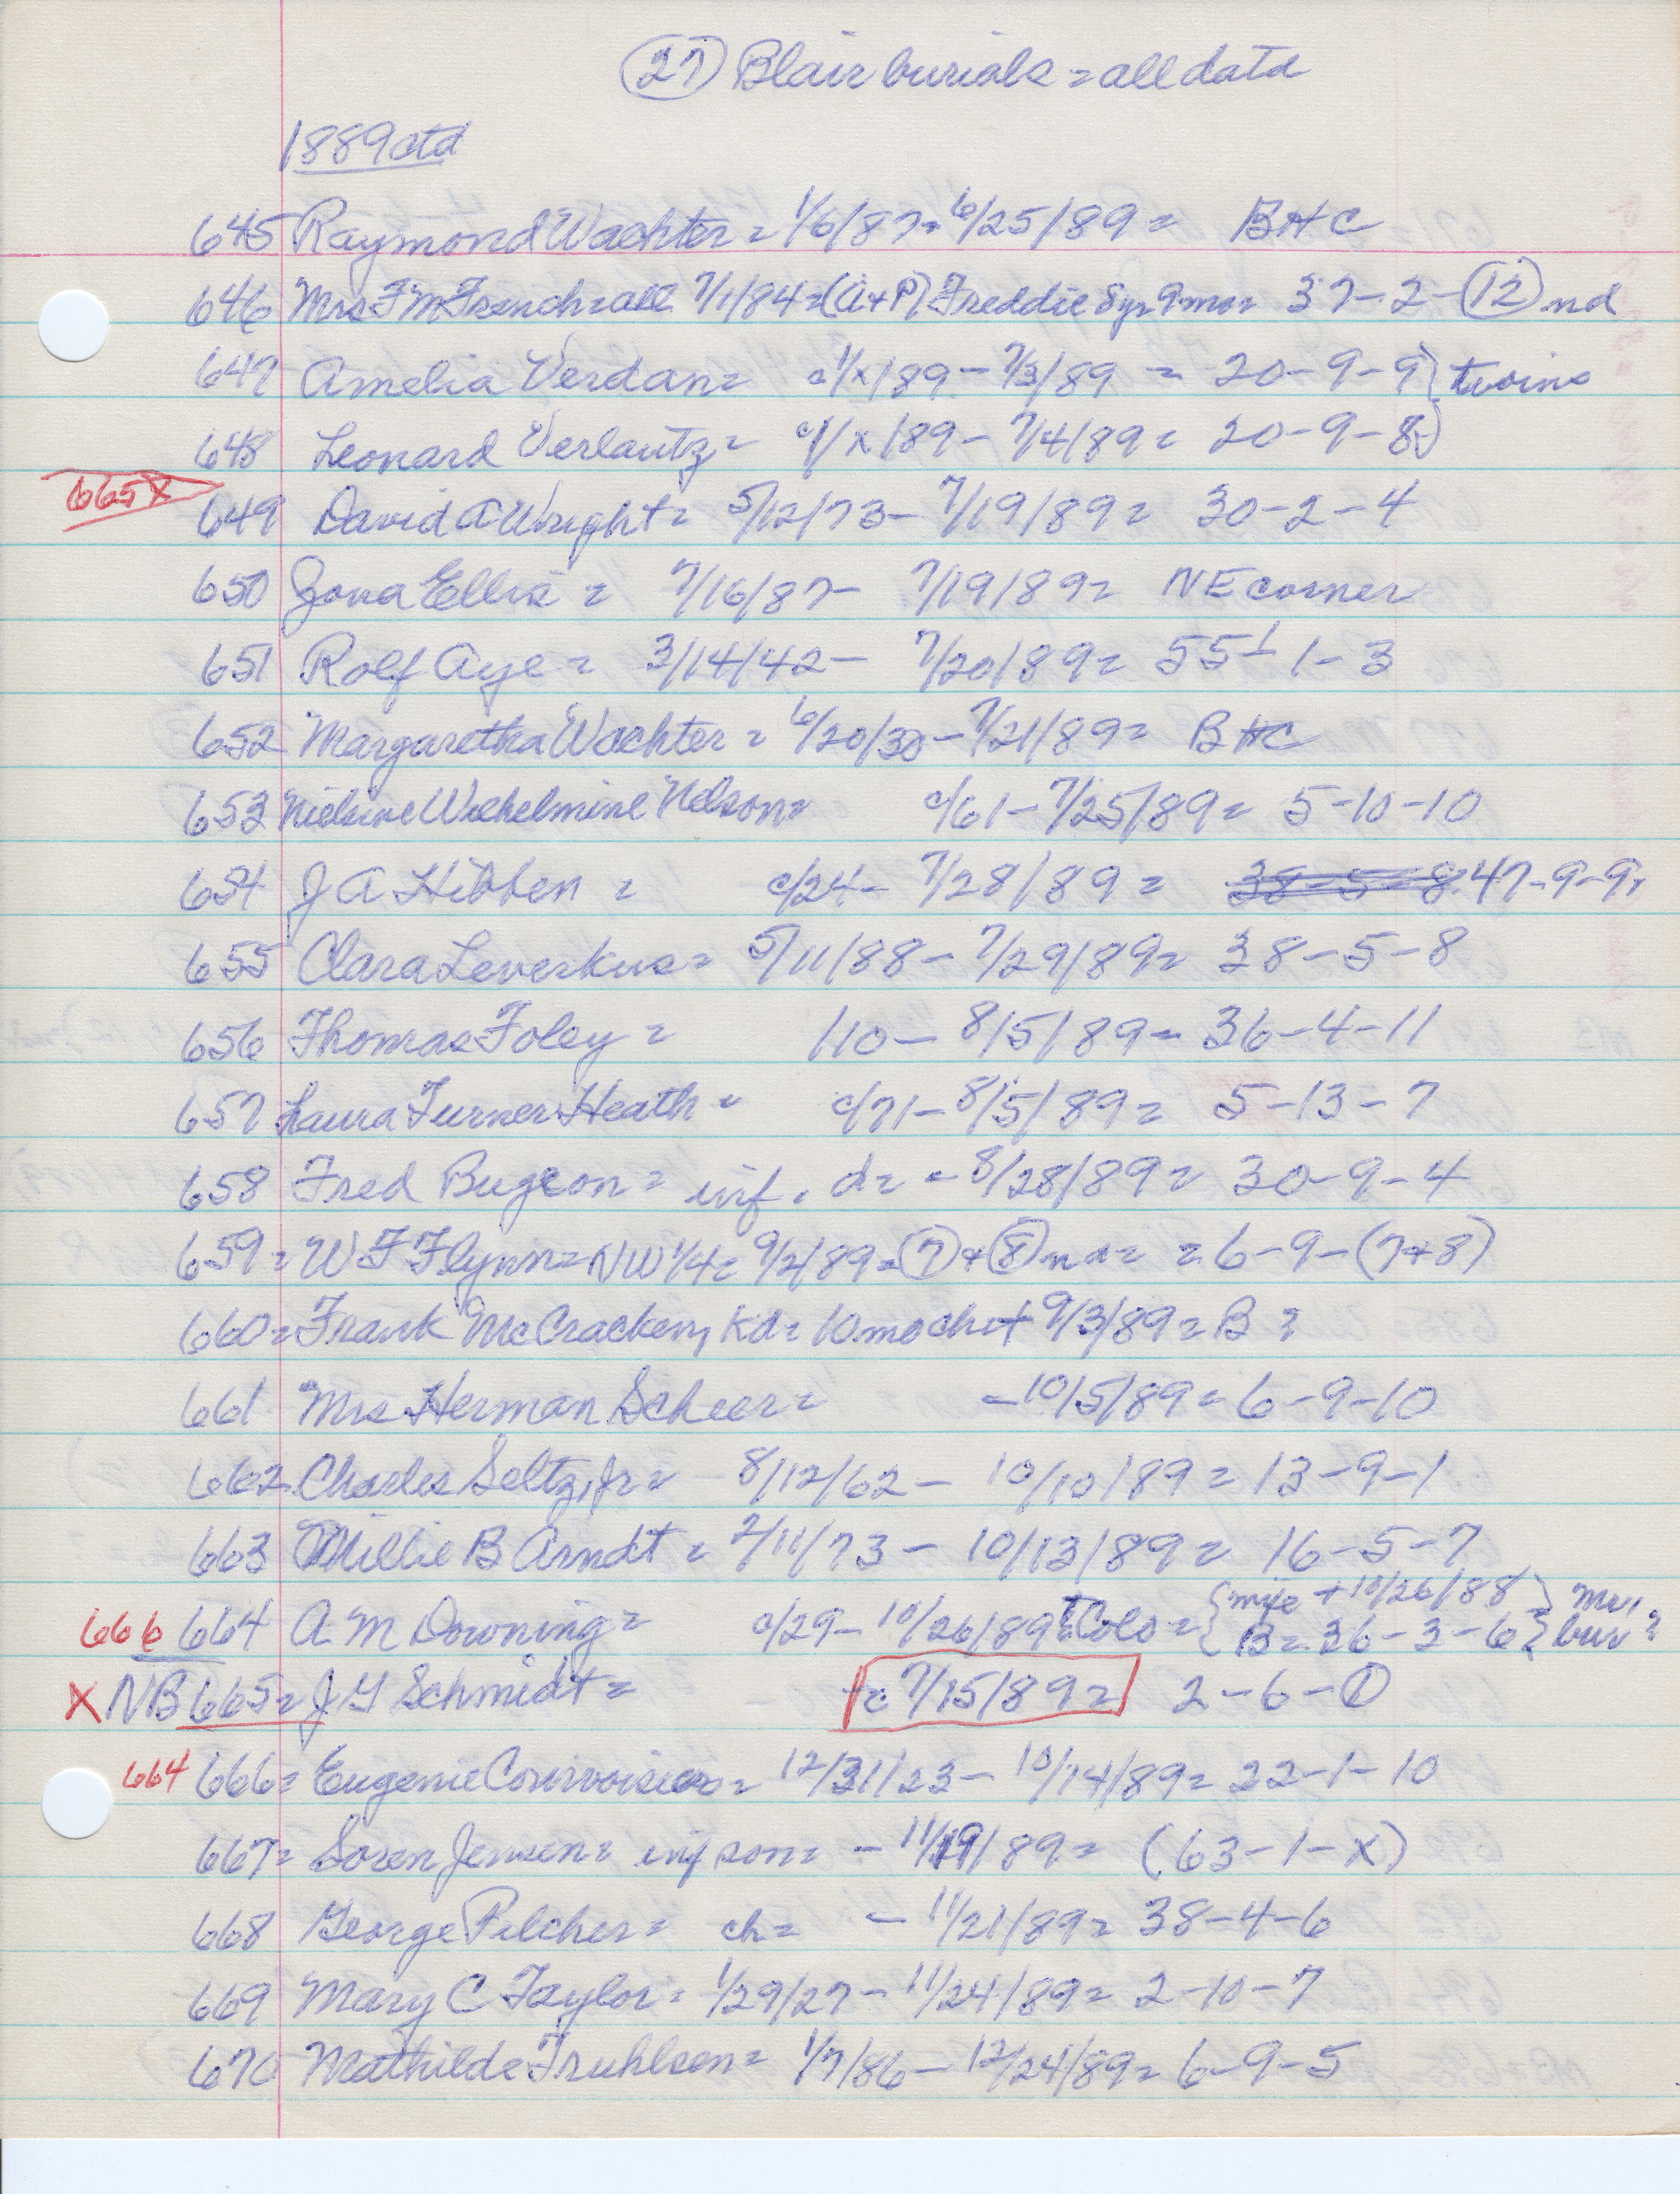 (27) Blair burials = all data
1889 ctd
645 Raymond Wachter = 1/6/87 = 6/25/89 = BHC
646 Mrs F M French = all 7/1/84 = (A+P) Freddie 8yr 9mo = 37-2-(12) nd
647 Amelia Verdan = c1/x/89 - 7/3/89 = 20-9-9} twins
648 Leonard = c1/x/89 - 7/4/89 = 20-9-8}
665X
649 David A Wright = 5/12/73 - 7/19/89 = 30-2-4
650 Zona Ellis = 7/16/87 - 7/19/89 = NE corner
651 Rolf Aye = 3/14/42 - 7/20/89 = 55-1-3
652 Margaretha Wachter = 6/20/30 - 7/21/89 = BHC
653 Nielsine Wilhelmine Nelson = c/61 - 7/25/89 = 5-10-10
654 J A Hibben = c/24 - 7/28/89 = 38-5-8 47-9-9
655 Clara Leverkus = 5/11/88 - 7/29/89 = 38-5-8
656 Thomas Foley = 110 - 8/5/89 = 36-4-11
657 Laura Turner Heath = c/71 - 8/5/89 = 5-13-7
658 Fred Bugeon = inf. d = - 8/28/89 = 30-9-4
659 = W F Flynn = NW 1/4 = 9/2/89 = (7) + (8) nd = = 6-9-(7+8)
660 = Frank McCracken, Kd = 10 mo ch + 9/3/89 = B ?
661 Mrs Herman Scheer = - 10/5/89 = 6-9-10
662 Charles Seltz, Jr = 8/12/62 - 10/10/89 = 13-9-1
663 Millie B Arndt = 2/11/73 - 10/13/89 = 16-5-7
666 664 A M Downing = c/29 - 10/26/89 Colo = {wife + 10/26/88} ms,
B = 36-3-6} bur ?
X NB 665 = J G Schmidt = = 7/15/89 = 2-6-(1)
664 666 = Eugenie Courvoisier = 12/31/23 - 10/14/89 = 22-1-10
667 = Soren Jensen = inf son = - 11/19/89 = (63-1-x)
668 George Pilcher = ch = - 11/21/89 = 38-4-6
669 Mary C Taylor = 1/29/27 - 11/24/89 = 2-10-7
670 Mathilde Fruhlsen = 1/7/86 - 12/24/89 = 6-9-5